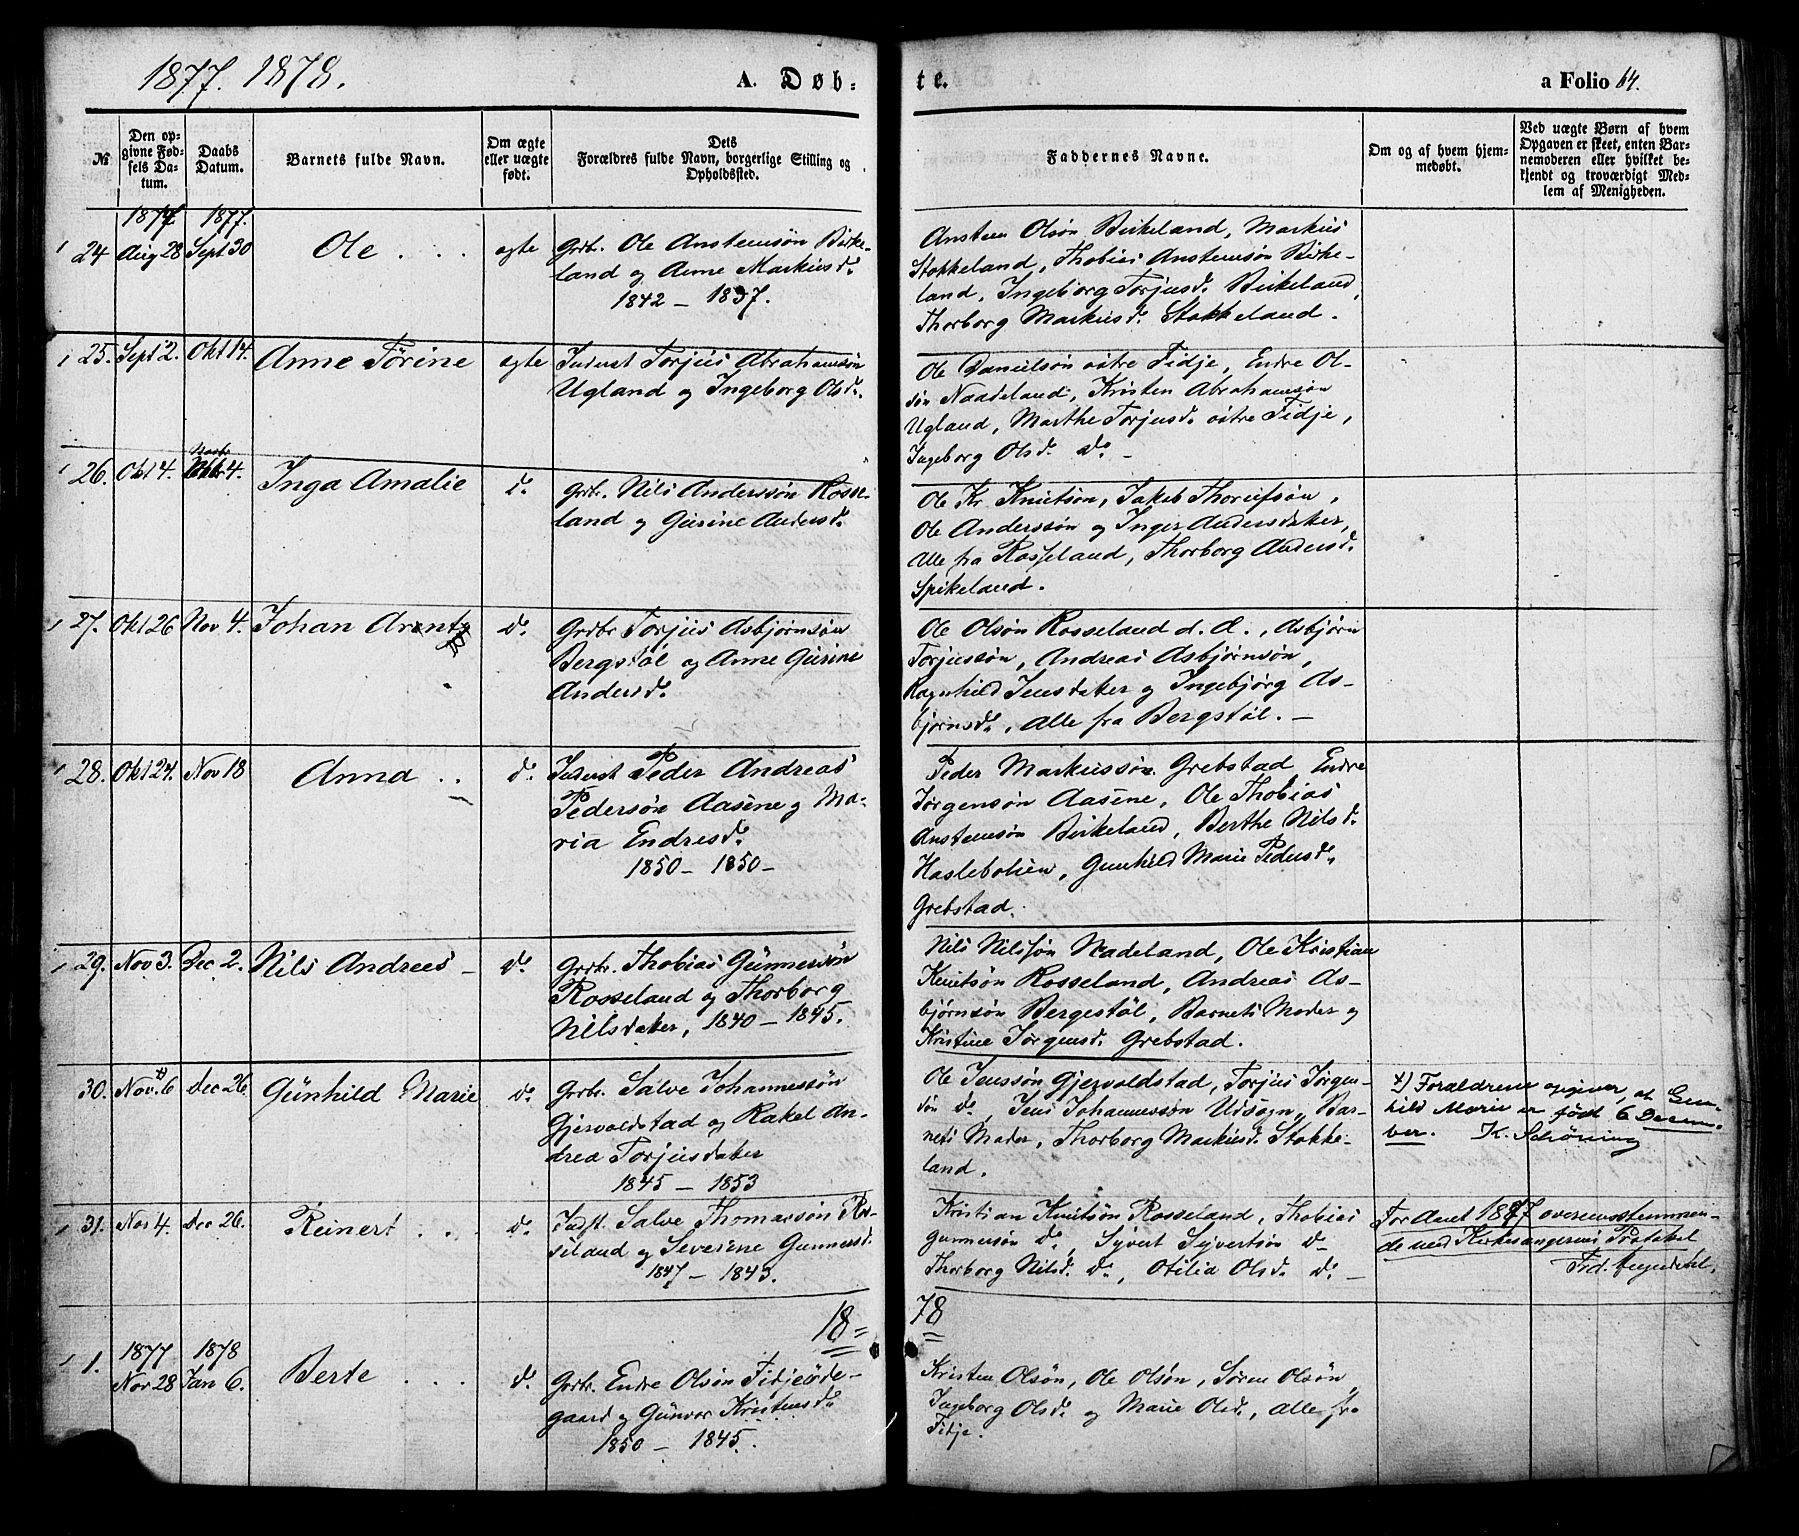 1877. 1878.
A. Døb-
te.
a Folio 64.
№
Den op-
givne Fød-
sels Da-
tum.
Daabs
Datum.
Barnets fulde Navn.
Om ægte
eller uægte
født.
Dets
Forældres fulde Navn, borgerlige Stilling og
Opholdssted.
Faddernes Navne.
Om og af hvem hjem-
medøbt.
Ved uægte Børn af hvem
Opgaven er skeet, enten Bar-
nemoderen eller hvilket be-
kjendt og troværdigt Med-
lem af Menigheden.
1877 1877.
24 Aug 28 Sept 30 Ole egte
Grbr. Ole Anstensøn Birke-
land og Anne Markusd.
1842 – 1837.
Ansten Olsøn Birkeland, Markus
Stokkeland, Thobias Anstensøn Birke-
land, Ingeborg Torjusd. Birkeland,
Thorborg Markusd. Stokkeland.
25. Sept 2. Okt 14. Anne Törine egte
Inderst Torjus Abrahamsøn
Ugland og Ingeborg Olsd.
Ole Danielsøn østre Fidje, Endre Ol-
søn Naadeland, Kristen Abrahamsøn
Ugland, Marthe Torjusd. østre Fidje,
Ingeborg Olsd. do –
26. Okt 4. Novbr 4. Inga Amalie do
Grbr. Nils Anderssøn Rosse-
land og Gurine Andersd.
Ole Kr Knutsøn, Jakob Thorufsøn,
Ole Anderssøn og Inger Andersdater,
Alle fra Rosseland, Thorborg Andersd.
Spikeland.
27. Okt 26 Nov 4. Johan Arent do
Grdbr Torjus Asbjørnsøn
Bergstøl og Anne Gurine
Andersd.
Ole Olsøn Rosseland d. æ., Asbjørn
Torjussøn, Andreas Asbjørnsøn,
Ragnhild Jensdater og Ingebjørg As-
bjørnsd., Alle fra Bergstøl. –
28. Okt 24. Nov 18 Anna do
Inderst Peder Andreas
Pedersøn Aasene og Ma-
ria Endresd.
1850 – 1850 –
Peder Markussøn Grebstad Endre
Jørgensøn Aasene, Ole Thobias
Anstensøn Birkeland, Berthe Nilsd.
Haslebohien, Gunhild Marie Pedersd.
Grebstad.
29. Nov 3. Dec 2. Nils Andrees – do
Grbr. Thobias Gunnersøn
Rosseland og Thorborg
Nilsdater, 1840 – 1845.
Nils Nilssøn Nadeland, Ole Kristian
Knutsøn Rosseland, Andreas As-
bjørnsøn Bergestøl, Barnets Moder og
Kristine Jørgensd. Grebstad.
30. Nov. 6 Dec 26. Gunhild Marie do
Grbr. Salve Johannessøn
Gjervoldstad og Rakel An-
drea Torjusdater
1845 – 1853
Ole Jenssøn Gjervoldstad, Torjus Jørgen-
søn do, Jens Johannessøn Udsogn, Bar-
nets Moder, Thorborg Markusd. Stokke-
land.
x) Forældrene opgiver, at Gun-
hild Marie er født 6 Decem-
ber. K. Schøning
31. Nov 4. Dec 26. Reinert do
Indst. Salve Thomassøn Ros-
seland og Severine Gunnersd.
1847 – 1843.
Kristian Knutsøn Rosseland, Thobias
Gunnersøn do, Syvert Syvertsøn do
Thorborg Nilsd. do, Otilia Olsd. do –
For Aaret 1877 overensstemmen-
de med Kirkesangerens Protokol
18= 78
1877 1878
1. Nov 28 Jan 6. Berte do
Grbr. Endre Olsøn Fidjeøde-
gaard og Gunvor Kristensd.
1850 – 1845.
Kristen Olsøn, Ole Olsøn, Søren Olsøn,
Ingeborg Olsd. og Marie Olsd., alle fra
Fidje.